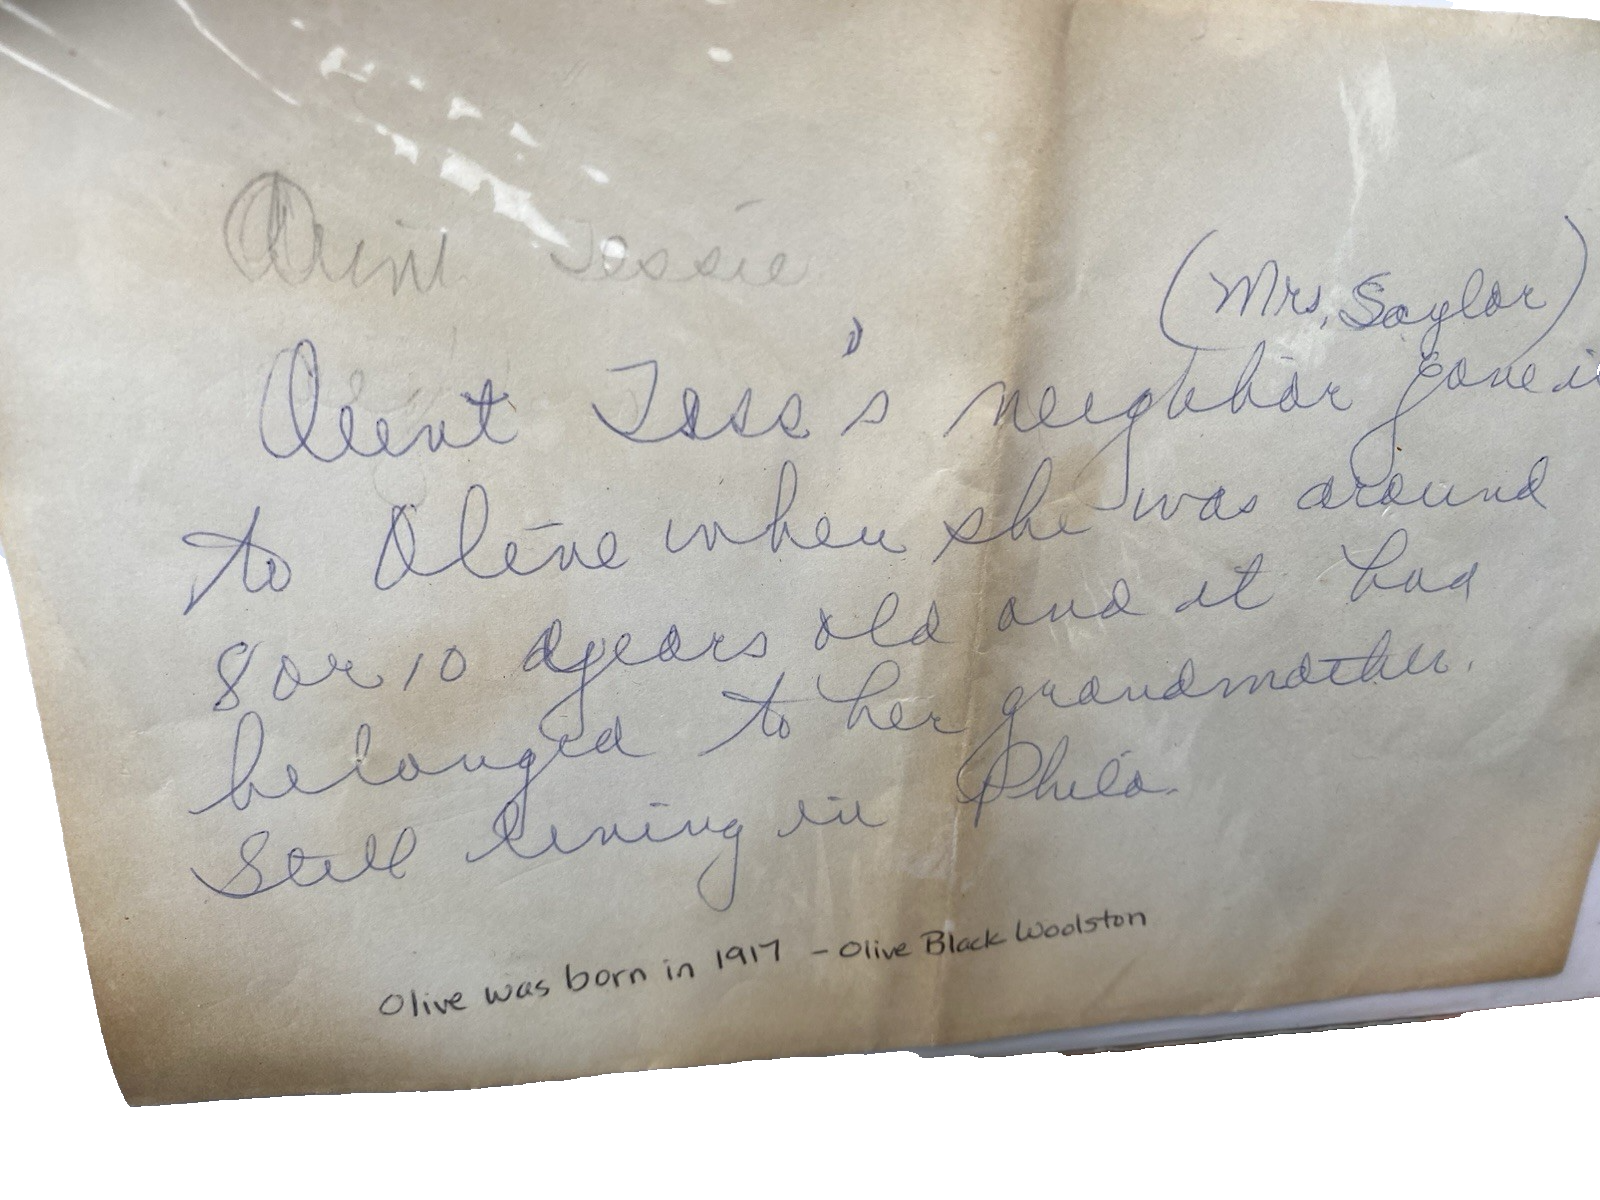 Aunt Tessie
(Mrs. Saylor)
Aunt Tess's neighbor gave i
to Olive when she was around
8 or 10 years old and it had
belonged to her grandmother.
Still living in Phila.
Olive was born in 1917 - Olive Black Woolston